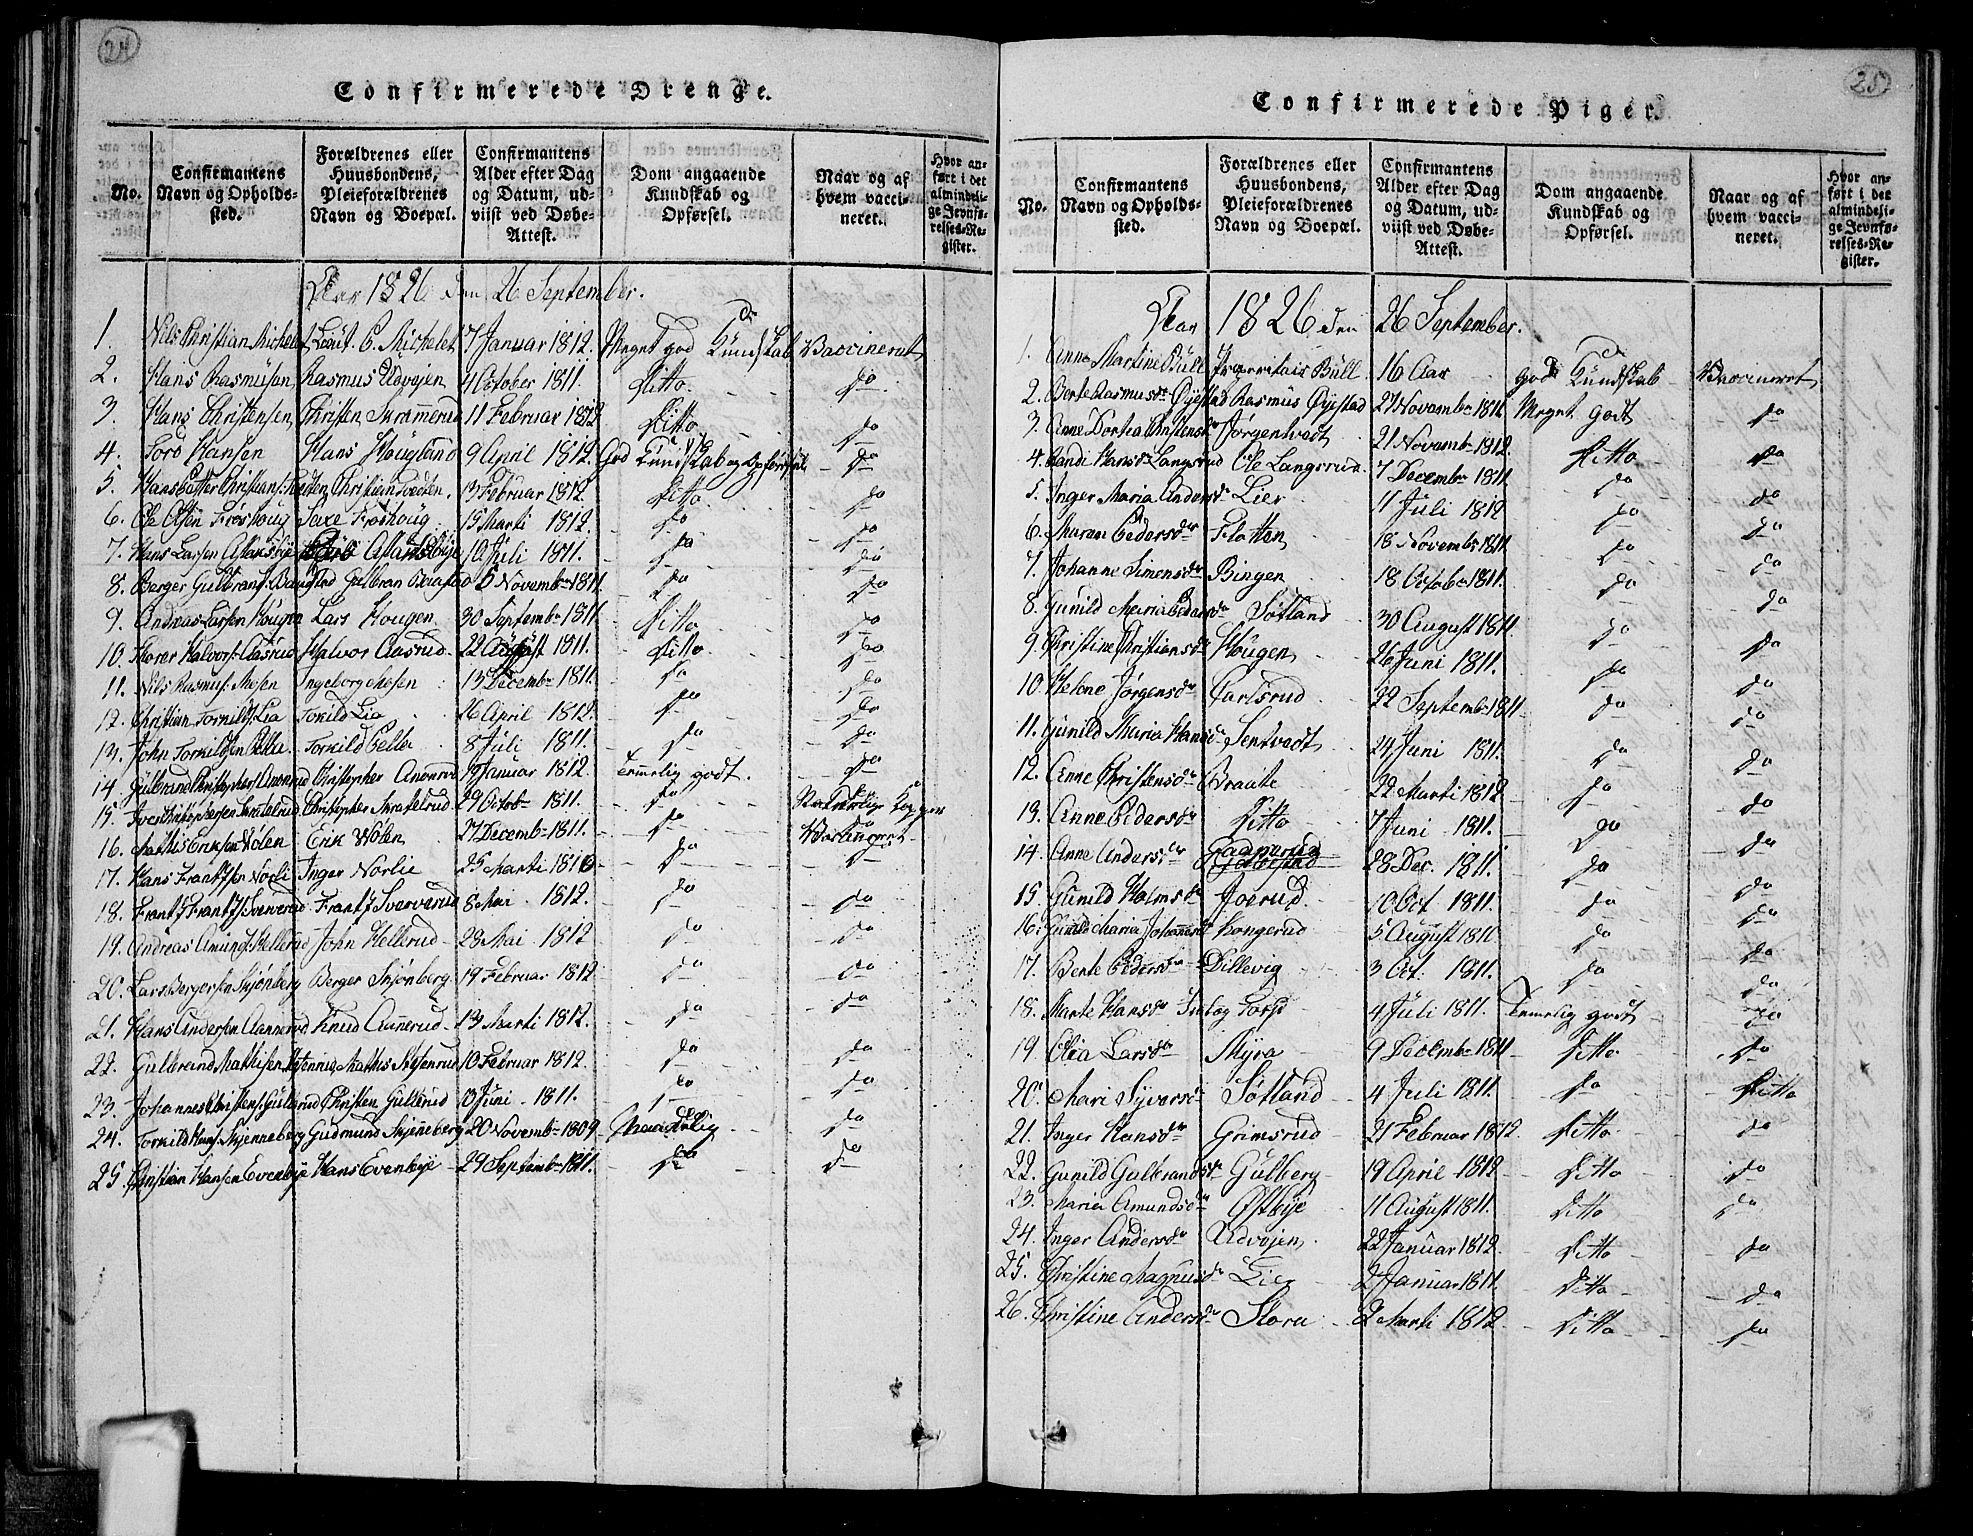 24
Confirmerede Drenge.
No.
Confirmantens Navn og Opholdssted.
Forældrenes eller Huusbondens, Pleieforældrenes Navn og Boepæl.
Confirmantens Alder efter Dag og Datum, udviist ved Døbe-Attest.
Dom angaaende Kundskab og Opførsel.
Naar og af hvem vaccineret.
Hvor anført i det almindelige Jevnførelses-Register.
Aar 1826 den 26 September.
1. Nils Christian Michelet Lieut. C. Michelet 7 Januar 1812. Meget god Kundskab Vaccineret
2. Hans Rasmusen Rasmus Udvøjen 4 October 1811. Ditto do
3. Hans Christensen Christen Skrammerud 11 Februar 1812 Ditto do
4. Hansen Hans Hougland 9 April 1812. God Kundskab og Opførsel do
5. Christian Tvedten 13 Februar 1812. Ditto do
6. Ole Frøshoug Frøshoug 15 Marti 1812 do do
7. Hans Larsen 10 Juli 1811. do do
8. Berger Gulbrans. Gulbran 5 Novembr 1811. do do
9. Andreas Larsen Hougen Lars Hougen 30 Septembr 1811 Ditto do
10. Halvors. Aasrud Halvor Aasrud 22 August 1811. Ditto do
11. Nils Rasmus. Mosen Ingeborg Mosen 13 Decembr 1811. do do
12. Christian Torkilds. Lia Torkild Lia 26 April 1812. do do
13. John Torkildsen Torkild 8 Juli 1811. do do
14. Gulbrand Christopher Januar 1812. Temmelig godt. do
15. Iver Christophersen Christopher 29 Octob 1811. do Naturlige Kopper
16. Mathis Eriksen Vølen Erik Vølen 27 Decembr 1811. do Vaccineret
17. Hans Frantsen Norli Inger Norlie 25 Marti do do
18. Frants Frants. Frants Sververud 8 Mai 1812. do do
19. Andreas Amunds. Kellerud John Kellerud 28 Mai 1812 do do
20. Lars Bergersen Skjønberg Berger Skjønberg 19 Februar 1812 do do
21. Hans Andersen Aannerud Knud Aannerud 13 Marti 1812. do do
22. Gulbrand Mathisen Mathis 10 Februar 1812. do do
23. Johannes Christens. Gullerud Christen Gullerud Juni 1811. do do
24. Torkild Hans. Skjenneberg Gudmund Skjenneberg 20 Novembr 1809 Maadelig do
25. Christian Hansen Evenbye Hans Evenbye 29 Septembr 1811. do do
25
Confirmerede Piger.
No.
Confirmantens Navn og Opholdssted.
Forældrenes eller Huusbondens, Pleieforældrenes Navn og Boepæl.
Confirmantens Alder efter Dag og Datum, udviist ved Døbe-Attest.
Dom angaaende Kundskab og Opførsel.
Naar og af hvem vaccineret.
Hvor anført i det almindelige Jevnførelses-Register.
Aar 1826 den 26 September.
1. Anne Martine Büll Propritair Büll 16 Aar god Kundskab Vaccineret
2. Berte Rasmusdr Øijestad Rasmus Øijestad 27 Novembr 1811 Meget godt do
3. Anne Dortea Christensdr Jørgentvedt 21 Novembr 1812. Ditto do
4. Randi Hansdr Langsrud Ole Langsrud 7 Decembr 1811 do do
5. Inger Maria Andersdr Lier 11 Juli 1812 do do
6. Maren Pedersdr Flatten 18 Novembr 1811 do do
7. Johanne Simensdr Bingen 18 Octobr 1811. do do
8. Gunild Maria Pedersdr Søtland 30 August 1811. do do
9. Christine Christiansdr Hougen 26 Juni 1811. do do
10. Helene Jørgensdr Carlsrud 22 Septembr 1811 do do
11. Gunild Maria Hansdr 24 Juni 1811. do do
12. Anne Christensdr Braate 22 Marti 1812 do do
13. Anne Pedersdr Ditto 7 Juni 1811. do do
14. Anne Andersdr 28 Dec. 1811. do do
15. Gunild Holmsdr Joerud 10 Oct 1811. do do
16. Gunild Maria Johannesdr Kongerud 5 August 1810 do do
17. Berte Pedersdr Dillevig 3 Oct. 1811. do do
18. Marte Hansdr Torp 4 Juli 1811. Temelig godt do
19. Olia Larsdr Myra 9 Decembr 1811 Ditto do
20. Mari Syversdr Søtland 4 Juli 1811. do Ditto
21. Inger Hansdr Grimsrud 21 Februar 1812. Ditto do
22. Gunild Gulbrandsdr Gulberg 19 April 1812 Ditto do
23. Maria Amundsdr Østbye 11 August 1811. Ditto do
24. Inger Andersdr Udvøjen 22 Januar 1812. Ditto do
25. Christine Magnusdr Lier 2 Januar 1811. Ditto do
26. Christine Andersdr Stora 2 Marti 1812 Ditto do